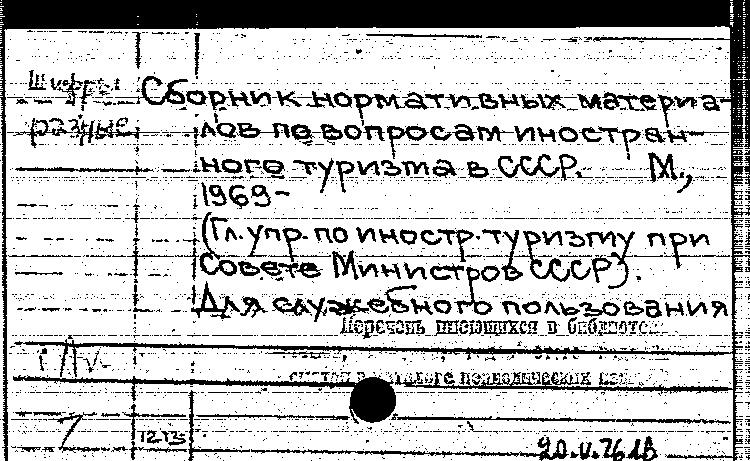 Шифры
разные
Сборник нормативных материа-
лов по вопросам иностран-
ного туризма в СССР. М.,
1969-
(Гл. упр. по иностр. туризму при
Совете Министров СССР).
Для служебного пользования
Перечень имеющихся в библиоте
каталоге периодических
7
20.V.76